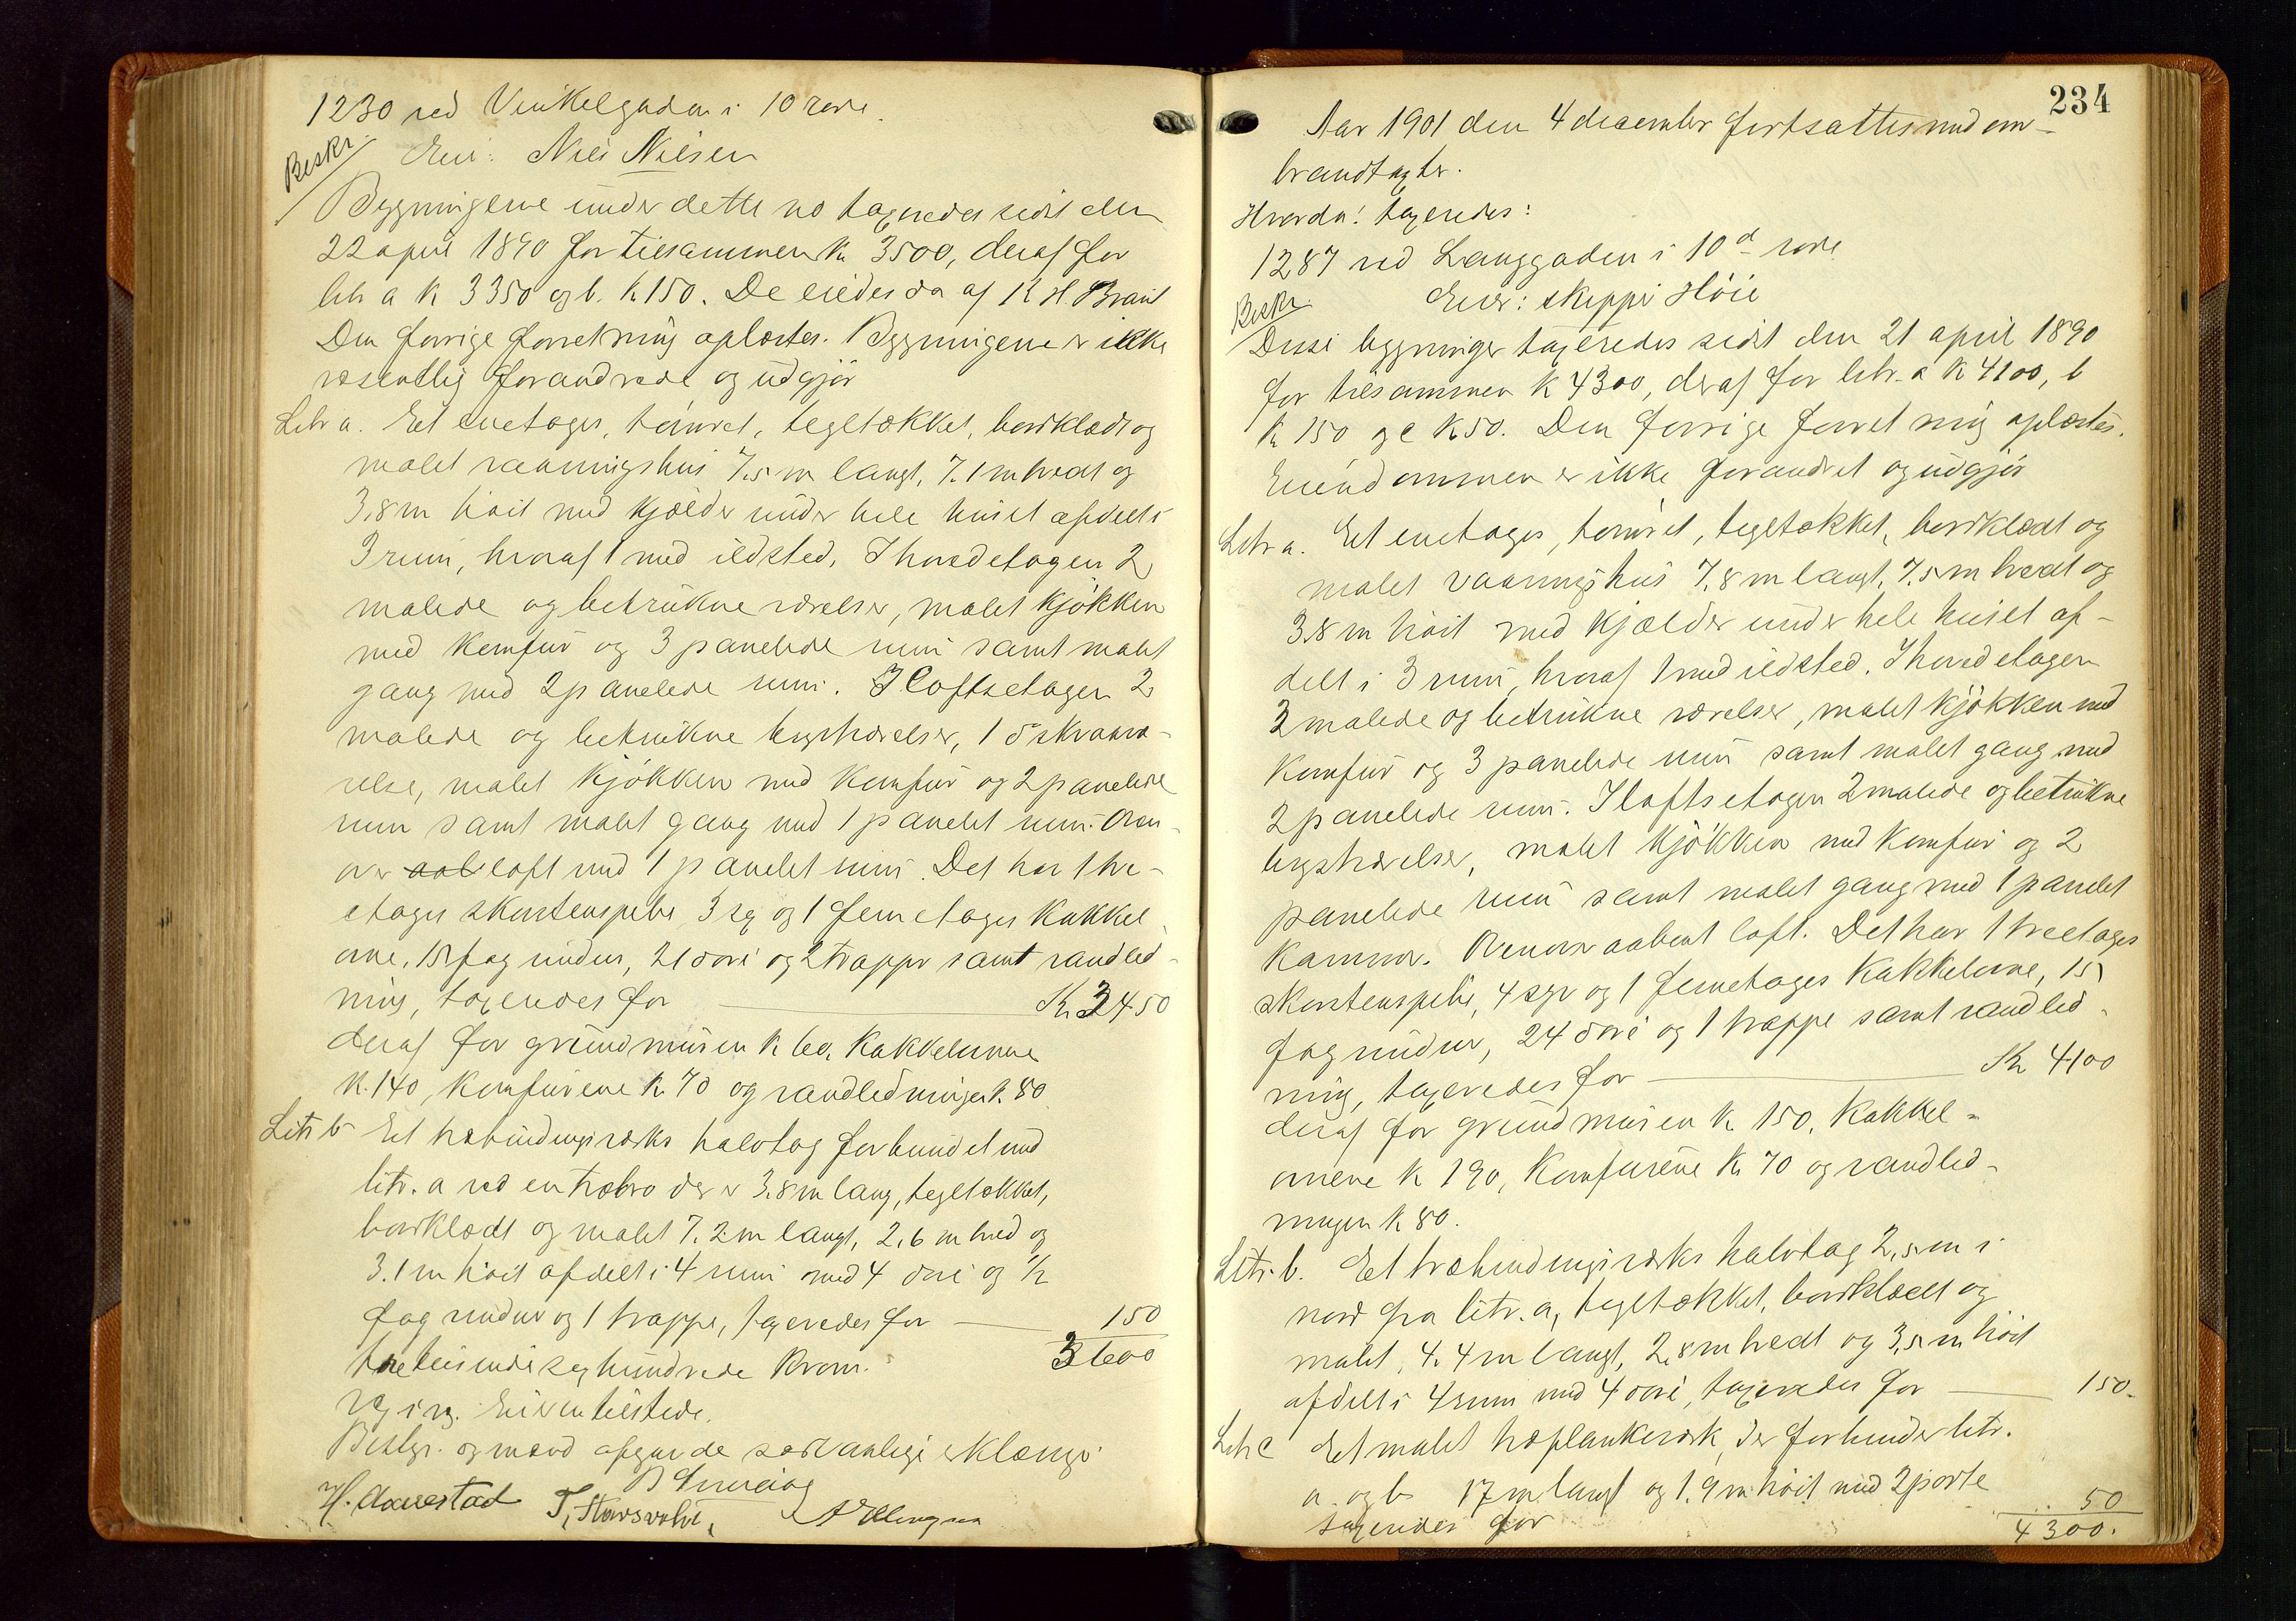 1230 ved Vinkelgaden i 10 rode.
Beskr.
Eier: Niels Nilsen
Bygningerne under dette no taxeredes sidst den
22 april 1890 for tilsammen k. 3500, deraf for
litr a k 3350 og b. k 150. De eiedes da af K H.
Den forrige forretning oplæstes. Bygningerne er ikke
væsentlig forandrede og udgjør
Litr a. Et enetages, tømret, tegltækket, bordklædt og
malet vaaningshus 7.5 m langt, 7.1 m bredt og
3.8 m høit med kjælder under hele huset afdelt i
3 rum, hvoraf 1 med ildsted. I hovedetagen 2
malede og betrukne værelser, malet kjøkken
med komfur og 3 panelede rum samt malet
gang med 2 panelede rum. I loftsetagen 2
malede og betrukne kvistværelser, 1 do skraavæ-
relse, malet kjøkken med komfur og 2 panelede
rum samt malet gang med 1 panelet rum. Oven-
over loft med 1 panelet rum. Det har 1 tre-
etages skorstenspibe 3 og 1 femetages kakkel-
ovne, 15 fag vinduer, 21 døre og 2 trapper samt vandled-
ning, taxeredes for — K. 3450
deraf for grundmuren k 60, kakkelovnene
k. 140, komfurene k. 70 og vandledningen k. 80
Litr b Et træbindingsværks halvtag forbundet med
litr. a ved en træbro der er 3.8 m lang, tegltækket,
bordklædt og malet 7.2 m langt, 2.6 m bred og
3.1 m høit afdelt i 4 rum med 4 døre og 1/2
fag vinduer og 1 trappe, taxeredes for — 150
tretusinde sex hundrede kroner. 3600
Eieren tilstede.
Bestyr. og mænd afgav de sædvanlige erklæringer
H. Aarrestad

234
Aar 1901 den 4 december fortsattes med om-
brandtagter.
Hvorda! taxeredes:
1287 ved Langgaden i 10d rode
Beskr.
Eier: skipper Høie
Disse bygninger taxeredes sidst den 21 april 1890
for tilsammen k 4300, deraf for litr. a k 4100, b
k 150 og c k 50. Den forrige forretning oplæstes.
Eiendommen er ikke forandret og udgjør
Litr a. Et enetages, tømret, tegltækket, bordklædt og
malet vaaningshus 7.8 m langt, 7.5 m bredt og
3.8 m høit med kjælder under hele huset af-
delt i 3 rum, hvoraf 1 med ildsted. I hovedetagen
3 malede og betrukne værelser, malet kjøkken med
komfur og 3 panelede rum samt malet gang med
2 panelede rum. I loftsetagen 2 malede og betrukne
kvistværelser, malet kjøkken med komfur og 2
panelede rum samt malet gang med 1 panelet
kammer. Ovenover aabent loft. Det har 1 treetages
skorstenspibe, 4 og 1 femetages kakkelovne, 15
fag vinduer, 24 døre og 1 trappe samt vandled-
ning, taxeredes for — K. 4100
deraf for grundmuren k. 150, kakkel-
ovnene k 190, komfurene k. 70 og vandled-
ningen k. 80.
Litr. b. Et træbindingsværks halvtag 2.5 m i
nord fra litr. a, tegltækket, bordklædt og
malet, 4.4 m langt, 2.8 m bredt og 3.5 m høit
afdelt i 4 rum med 4 døre, taxeredes for — 150.
Litr c Et malet træplankeværk, der forbinder litr.
a. og b 17 m. langt og 1.9 m. høit med 2 porte
taxeredes for 50
4300.